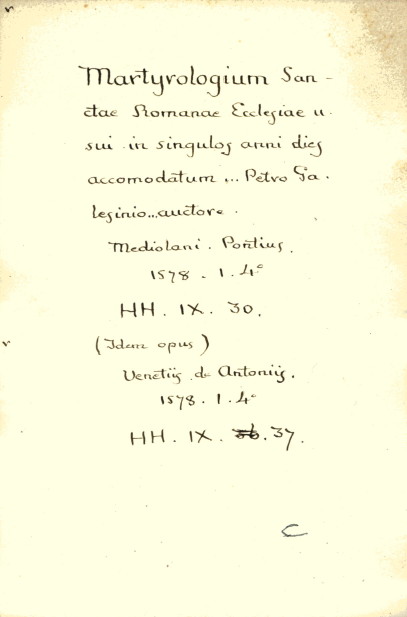 Martyrologium San-
ctae Romanae Ecclesiae u-
sui in singulos anni dies
accomodatum ... Petro Ga-
lesinio... auctore.
Mediolani. Pontius.
1578 - 1. 4°
HH. IX. 30.
(Idem opus)
Venetiis de Antoniis.
1578. 1. 4°
HH. IX. 36. 37.
C